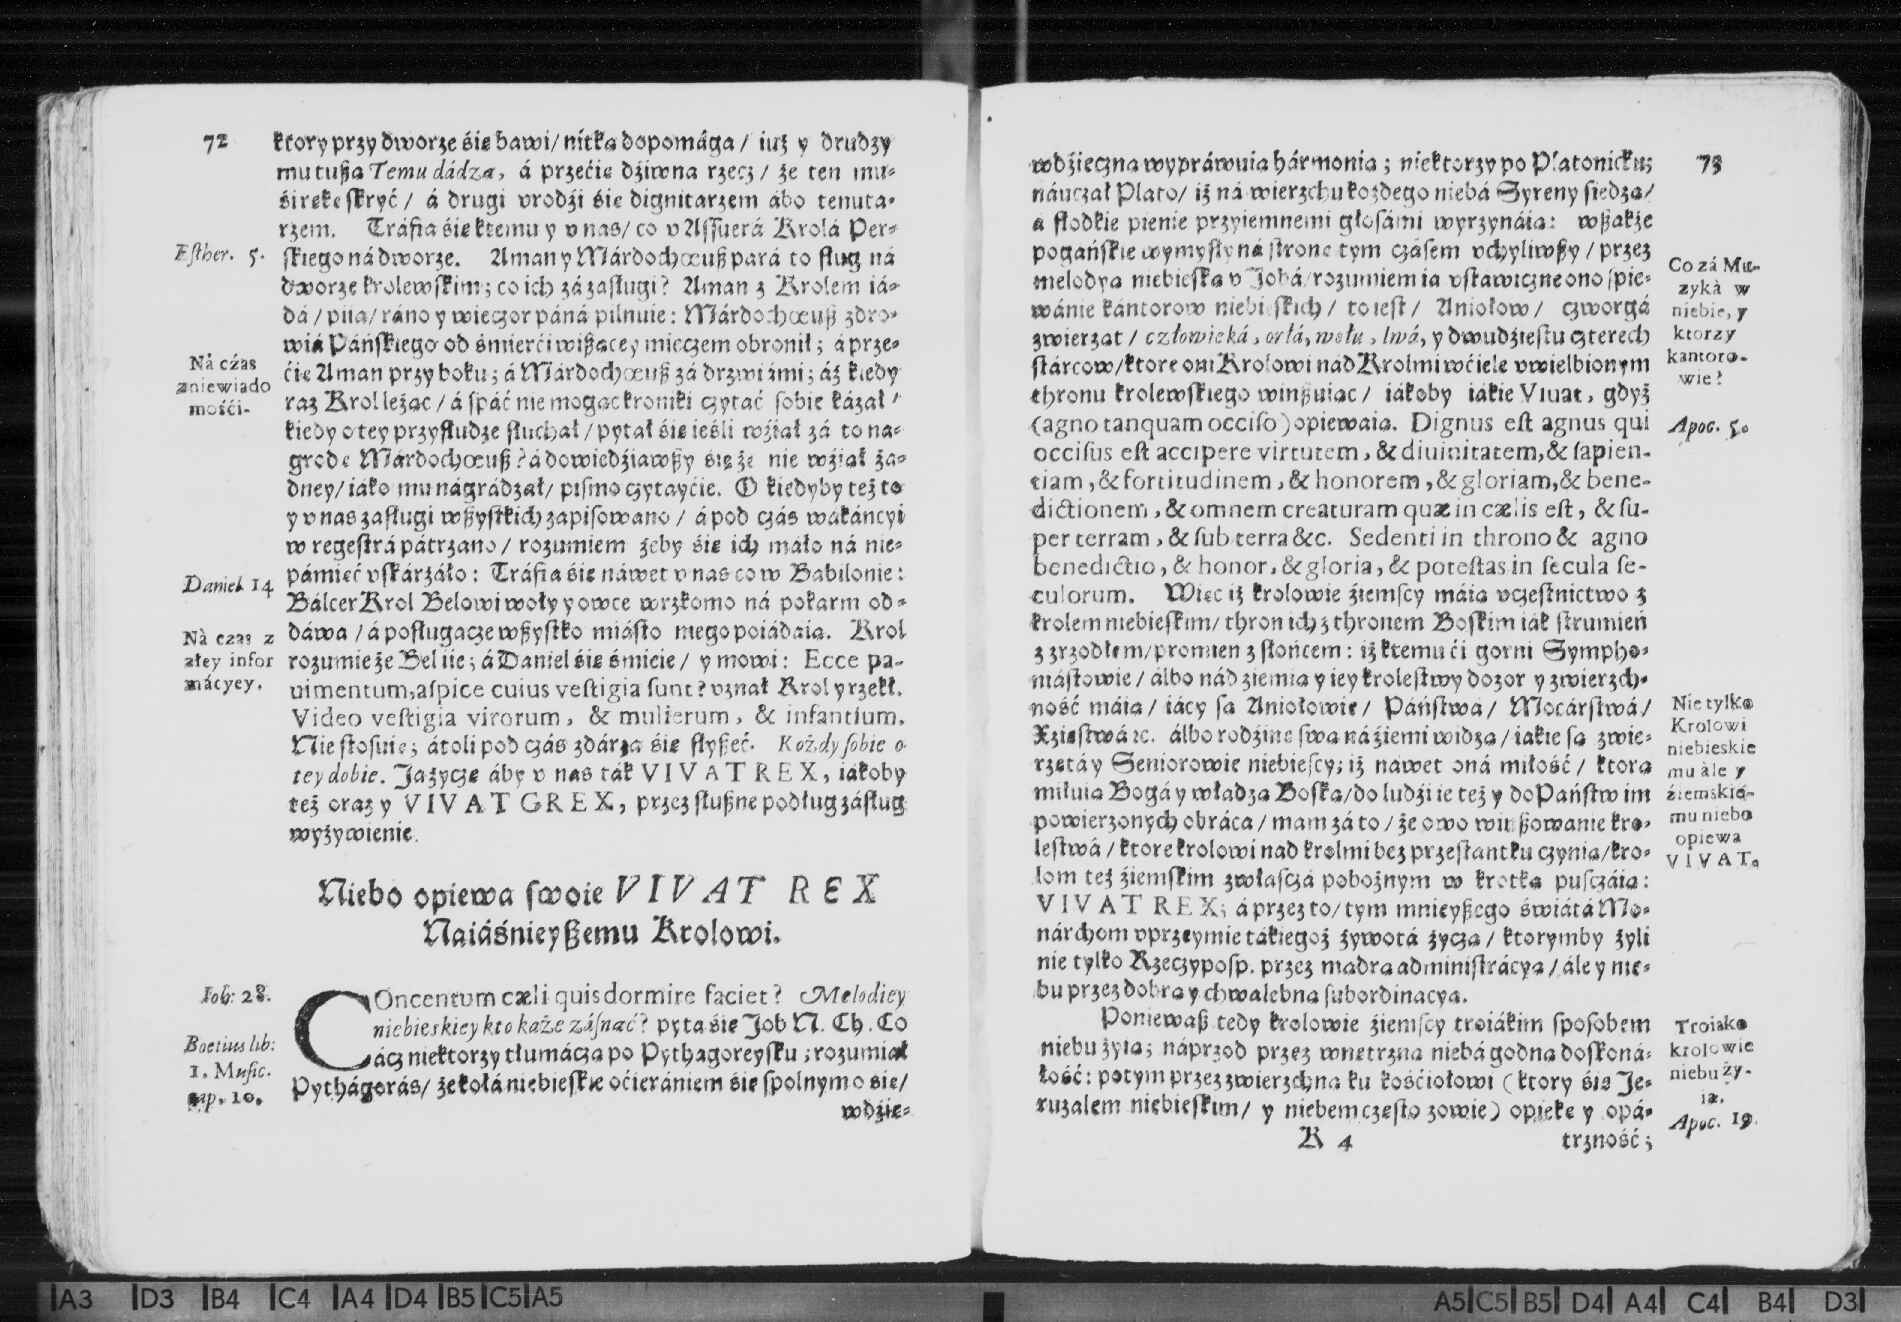 72
ktory przy dworze śie bawi/ nitka dopomága/ iuż y drudzy
mu tußa Temu dádza, á przećie dźiwna rzecz/ że ten mu-
śi reke skryć/ á drugi vrodźi śie dignitarzem ábo tenuta-
rzem. Tráfia śie ktemu y v nas/ co v Assuerá Krolá Per-
Esther. 5.
skiego ná dworze. Aman y Márdochœuß pará to sług ná
dworze krolewskim; co ich zá zasługi? Aman z Krolem iá-
dá/ piia/ ráno y wieczor páná pilnuie: Márdochœuß zdro-
wiá Páńskiego od śmierći wißacey mieczem obronił; á prze-
Ná cźas
zniewiado
mośći.
ćie Aman przy boku; á Márdochœuß zá drzwiámi; áż kiedy
raz Krol leżac/ á spáć nie mogac kroniki czytać sobie kázał/
kiedy o tey przysłudze słuchał/ pytał śie ieśli wźiał zá to na-
grode Márdochœuß? á dowiedźiawßy śie że nie wźiał ża-
dney/ iáko mu nágrádzał/ pismo czytayćie. O kiedyby też to
y v nas zasługi wßystkich zapisowano/ á pod czás wakáncyi
w regestrá pátrzano/ rozumiem żeby śie ich mało ná nie-
pámieć vskárżáło: Tráfia śie náwet v nas co w Babilonie:
Daniel. 14
Bálcer Krol Belowi woły y owce wrzkomo ná pokarm od-
dáwa/ á posługacze wßystko miásto niego poiádaia. Krol
Nà czas z
złey infor
mácyey.
rozumie że Bel iie; á Daniel śie śmieie/ y mowi: Ecce pa-
uimentum, aspice cuius vestigia sunt? vznał Krol y rzekł.
Video vestigia virorum, & mulierum, & infantium.
Nie stosuie; átoli pod czás zdárza śie słyßeć. Każdy sobie o
tey dobie. Ja życze áby v nas ták VIVAT REX, iákoby
też oraz y VIVAT GREX, przez słußne podług zásług
wyżywienie.
Niebo opiewa swoie VIVAT REX
Naiáśnieyßemu Krolowi.
Iob: 28.
COncentum cæli quis dormire faciet? Melodiey
niebieskiey kto każe zásnąć? pyta śie Job N. Ch. Co
Boetius lib:
1. Music.
cap. 10.
ácz niektorzy tłumácza po Pythagoreysku; rozumiał
Pythágorás/ że kołá niebieskie oćierániem śie spolnym o sie/
wdźie-
wdźieczna wypráwuia hármonia; niektorzy po Platonicku;
73
náuczał Plato/ iż ná wierzchu kożdego niebá Syreny siedza/
a słodkie pienie przyiemnemi głosámi wyrzynáia: wßakże
pogańskie wymysły ná strone tym czásem vchyliwßy/ przez
Co zá Mu-
zykà w
niebie, y
ktorzy
kantoro-
wie?
melodya niebieska v Jobá/ rozumiem ia vstawiczne ono spie-
wánie kántorow niebieskich/ to iest/ Aniołow/ czworgá
zwierzat/ człowieká, orłá, wołu, lwá, y dwudźiestu czterech
stárcow/ ktore oni Krolowi nád Krolmi w ćiele vwielbionym
thronu krolewskiego winßuiac/ iákoby iákie Viuat, gdyż
(agno tanquam occiso) opiewaia. Dignus est agnus qui
Apoc. 5.
occisus est accipere virtutem, & diuinitatem, & sapien-
tiam, & fortitudinem, & honorem, & gloriam, & bene-
dictionem, & omnem creaturam quæ in cælis est, & su-
per terram, & sub terra &c. Sedenti in throno & agno
benedictio, & honor, & gloria, & potestas in secula se-
culorum. Więc iż krolowie źiemscy máia vczestnictwo z
krolem niebieskim/ thron ich z thronem Boskim iák strumień
z zrzodłem/ promien z słońcem: iż ktemu ći gorni Sympho-
niástowie/ álbo nád ziemia y iey krolestwy dozor y zwierzch-
ność máia/ iácy sa Aniołowie/ Páństwá/ Mocárstwá/
Nie tylko
Krolowi
niebieskie
mu àle y
źiemskie-
mu niebo
opiewa
VIVAT.
Xziestwá ꝛc. álbo rodźine swa ná źiemi widza/ iakie sa zwie-
rzetá y Seniorowie niebiescy; iż nawet oná miłość/ ktora
miłuia Bogá y władza Boska/ do ludźi ie też y do Páństw im
powierzonych obráca/ mam zá to/ że owo winßowanie kro-
lestwá/ ktore krolowi nad krolmi bez przestantku czynia/ kro-
lom też źiemskim zwłasczá pobożnym w krotka pusczáia:
VIVAT REX; á przez to/ tym mnieyßego świátá Mo-
nárchom vprzeymie tákiegoż żywotá życza/ ktorymby żyli
nie tylko Rzeczyposp. przez madra administrácya/ ále y nie-
bu przez dobra y chwalebna subordinacya.
Poniewaß tedy krolowie źiemscy troiákim sposobem
Troiako
krolowie
niebu ży-
ia.
niebu żyia; náprzod przez wnetrzna niebá godna doskoná-
łość: potym przez zwierzchna ku kośćiołowi (ktory śie Je-
ruzalem niebieskim/ y niebem czesto zowie) opieke y opá-
Apoc. 19.
K 4
trzność;